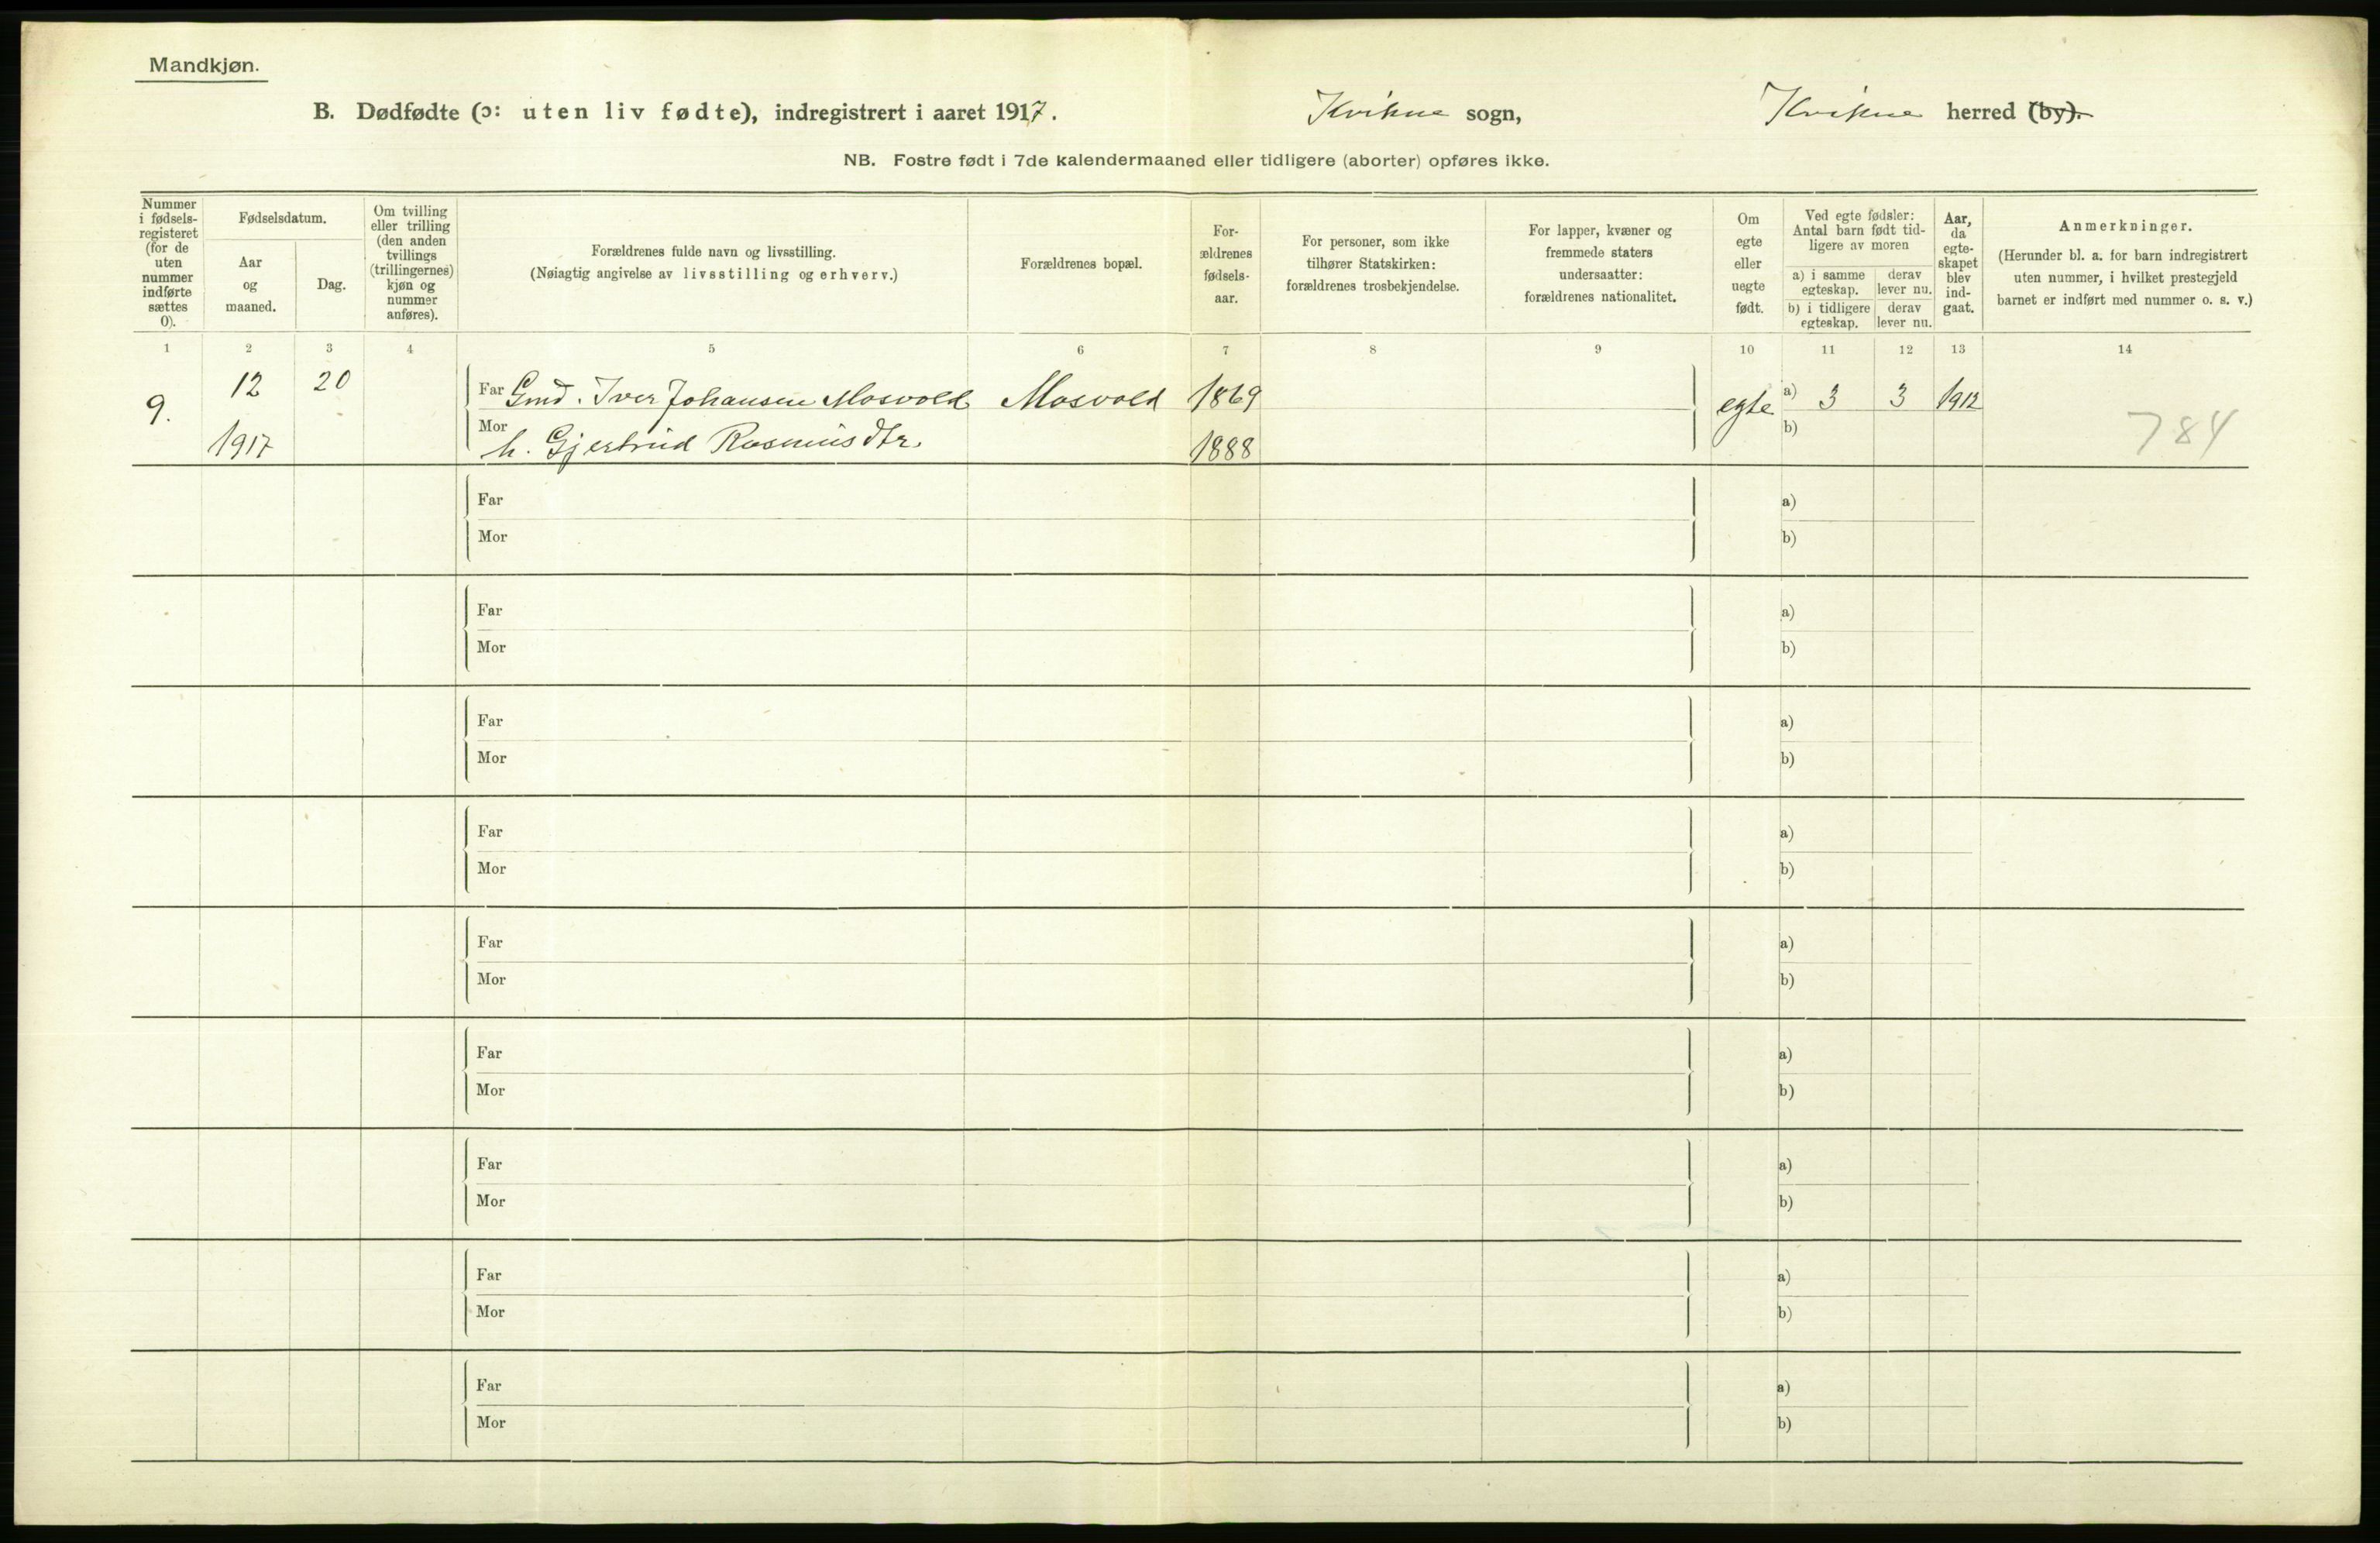 Mandkjøn.
B. Dødfødte (ɔ: uten liv fødte), indregistrert i aaret 1917. Kvikne sogn, Kvikne herred (by).
NB. Fostre født i 7de kalendermaaned eller tidligere (aborter) opføres ikke.
Nummer i fødsels-registeret (for de uten nummer indførte sættes 0).
Fødselsdatum.
Aar og maaned.
Dag.
Om tvilling eller trilling (den anden tvillings (trillingernes) kjøn og nummer anføres).
Forældrenes fulde navn og livsstilling.
(Nøiagtig angivelse av livsstilling og erhverv.)
Forældrenes bopæl.
For-ældrenes fødsels-aar.
For personer, som ikke tilhører Statskirken: forældrenes trosbekjendelse.
For lapper, kvæner og fremmede staters undersaatter: forældrenes nationalitet.
Om egte eller uegte født.
Ved egte fødsler: Antal barn født tid-ligere av moren
a) i samme egteskap.
derav lever nu.
b) i tidligere egteskap.
derav lever nu.
Aar, da egte-skapet blev ind-gaat.
Anmerkninger.
(Herunder bl. a. for barn indregistrert uten nummer, i hvilket prestegjeld barnet er indført med nummer o. s. v.)
1 2 3 4 5 6 7 8 9 10 11 12 13 14
9. 12 20 Far Gmd. Iver Johansen Mosvold Mosvold 1869 egte a) 3 3 1912
1917 Mor h. Gjertrud Rasmusdtr. 1888 b) 784
Far a)
Mor b)
Far a)
Mor b)
Far a)
Mor b)
Far a)
Mor b)
Far a)
Mor b)
Far a)
Mor b)
Far a)
Mor b)
Far a)
Mor b)
Far a)
Mor b)